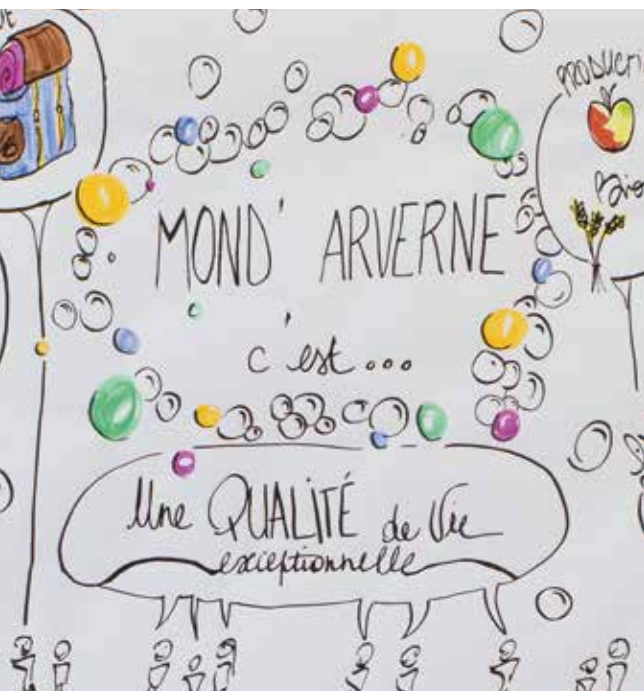 MOND' ARVERNE
c'est...
Une QUALITÉ de Vie
exceptionnelle
Bio